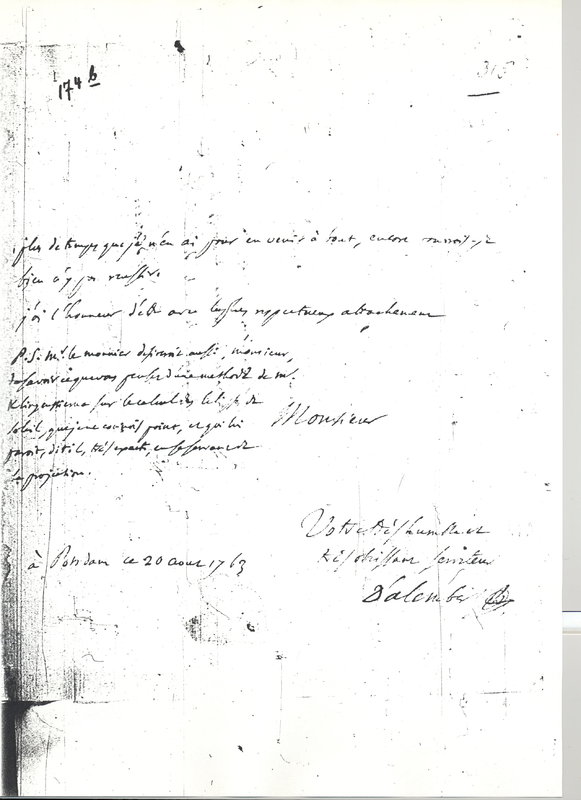 174 b
315
plus de temps que je n'en ai pour en venir à bout, encore pourrois-je
bien n'y pas reussir.
j'ai l'honneur d'etre avec le plus respectueux attachement
P.S. Mr. le monnier desireroit aussi, monsieur,
de savoir ce que vous pensez d'une methode de mr.
Klingstierna sur le calcul des eclipses de
soleil, que je ne connois point, et qui lui
paroit, dit il, très exacte, en se servant de
la projection.
Monsieur
Votre très humble et
très obeissant serviteur
D'alembert
à Potsdam ce 20 aout 1763